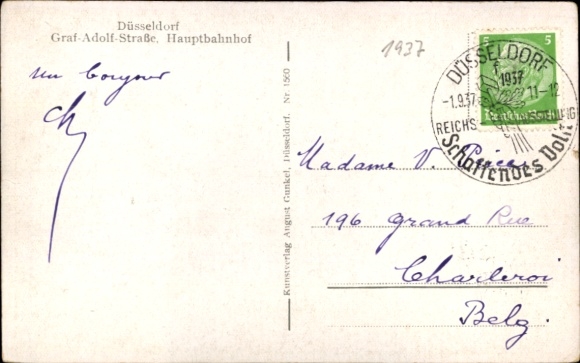 Düsseldorf
Graf-Adolf-Straße, Hauptbahnhof
un bonjour
Kunstverlag August Gunkel, Düsseldorf. Nr. 1560
1937
5 5
Deutsches Reich
DÜSSELDORF
1937
-1.9.37 11-12
REICHS
Schaffendes Volk
Madame V.
196 Grand Rue
Charleroi
Belg.